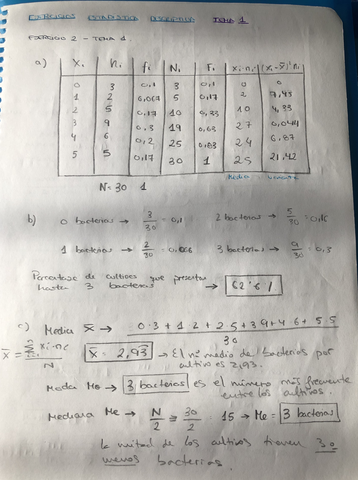 EJERCICIOS ESTADÍSTICA DESCRIPTIVA TEMA 1
EJERCICIO 2 - TEMA 1
a) Xi ni fi Ni Fi xi·ni (xi-x̄)²·ni
0 3 0,1 3 0,1 0
1 2 0,067 5 0,17 2 7,43
2 5 0,17 10 0,33 10 4,33
3 9 0,3 19 0,63 27 0,044
4 6 0,2 25 0,83 24 6,87
5 5 0,17 30 1 25 21,42
Media
N=30 1
b) 0 bacterias → 3/30 = 0,1 2 bacterias → 5/30 = 0,16
1 bacterias → 2/30 = 0,066 3 bacterias → 9/30 = 0,3
Porcentaje de cultivos que presentan
hasta 3 bacterias →
c) Media x̄ → 0·3+1·2+2·5+3·9+4·6+5·5
30
x̄ = Σ xi·ni / N x̄ = 2,93 → El nº medio de bacterias por
cultivo es 2,93.
Moda Mo → 3 bacterias es el número más frecuente
entre los cultivos.
Mediana Me → N/2 = 30/2 = 15 → Me = 3 bacterias
la mitad de los cultivos tienen 3 o
menos bacterias.